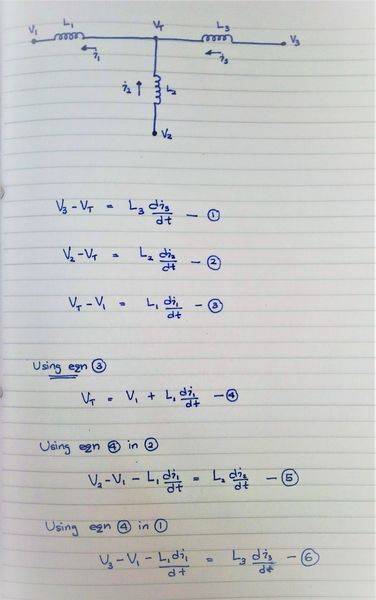 V1 L1 VT L3 V3
i1 i3
i2 L2
V2
V3 - VT = L3 di3/dt - ①
V2 - VT = L2 di2/dt - ②
VT - V1 = L1 di1/dt - ③
Using eqn ③
VT = V1 + L1 di1/dt - ④
Using eqn ④ in ②
V2 - V1 - L1 di1/dt = L2 di2/dt - ⑤
Using eqn ④ in ①
V3 - V1 - L1 di1/dt = L3 di3/dt - ⑥